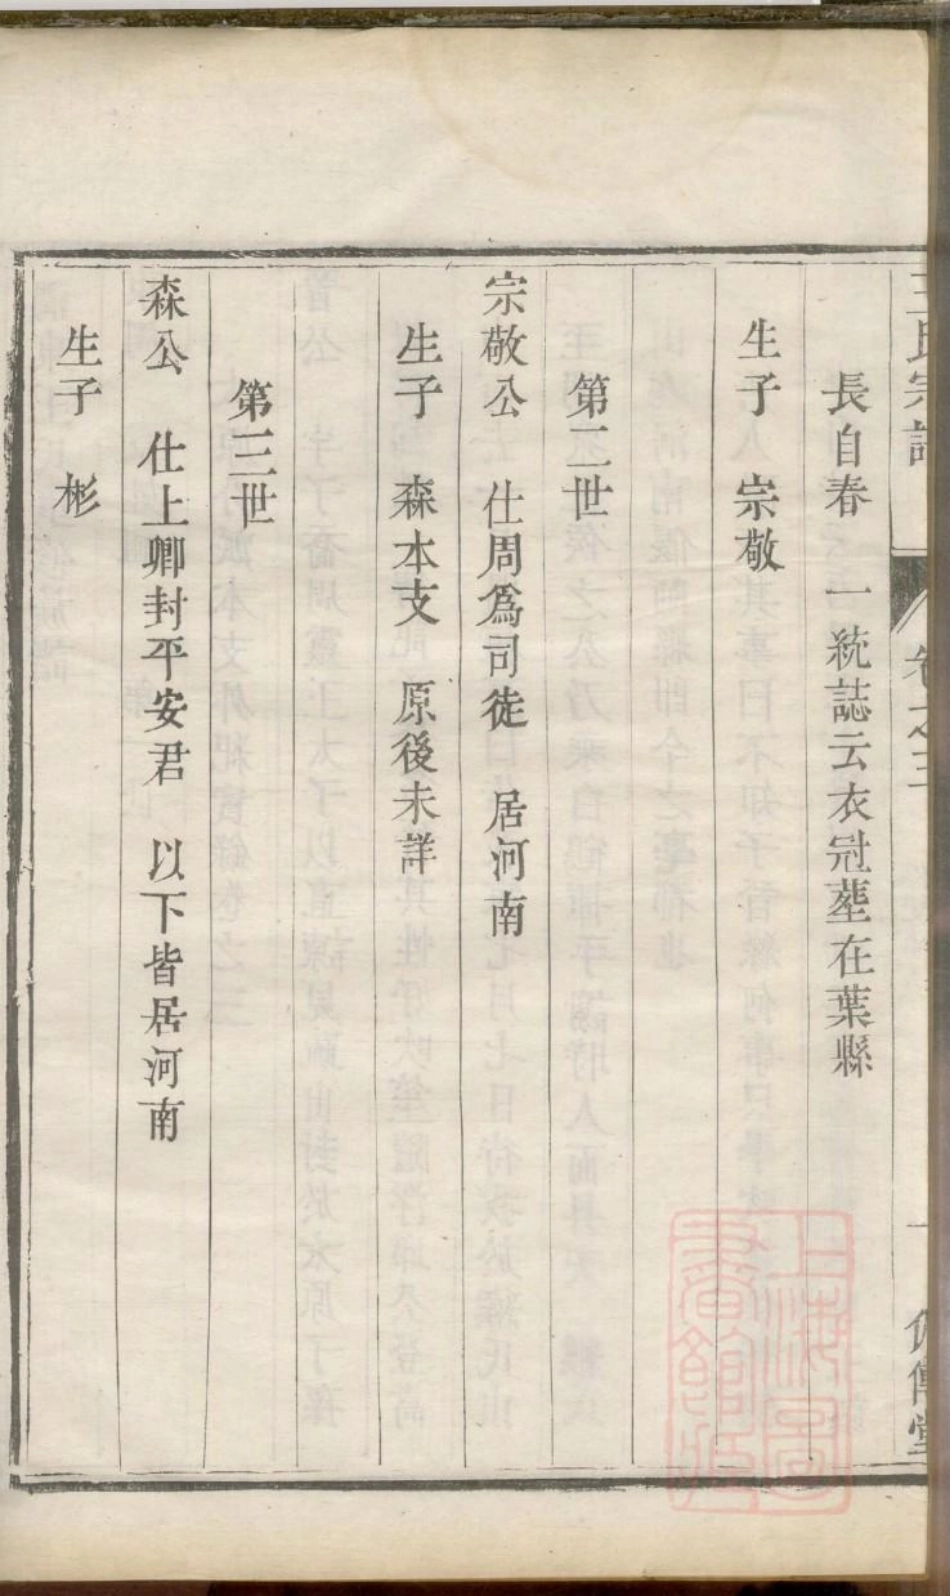 王氏宗譜
卷之三
一
長自春　一統誌云衣冠塟在葉縣
生子　宗敬
第二世
宗敬公　仕周爲司徒　居河南
生子　森本支　原後未詳
第三世
森公　仕上卿封平安君　以下皆居河南
生子　彬
上海圖
書館藏